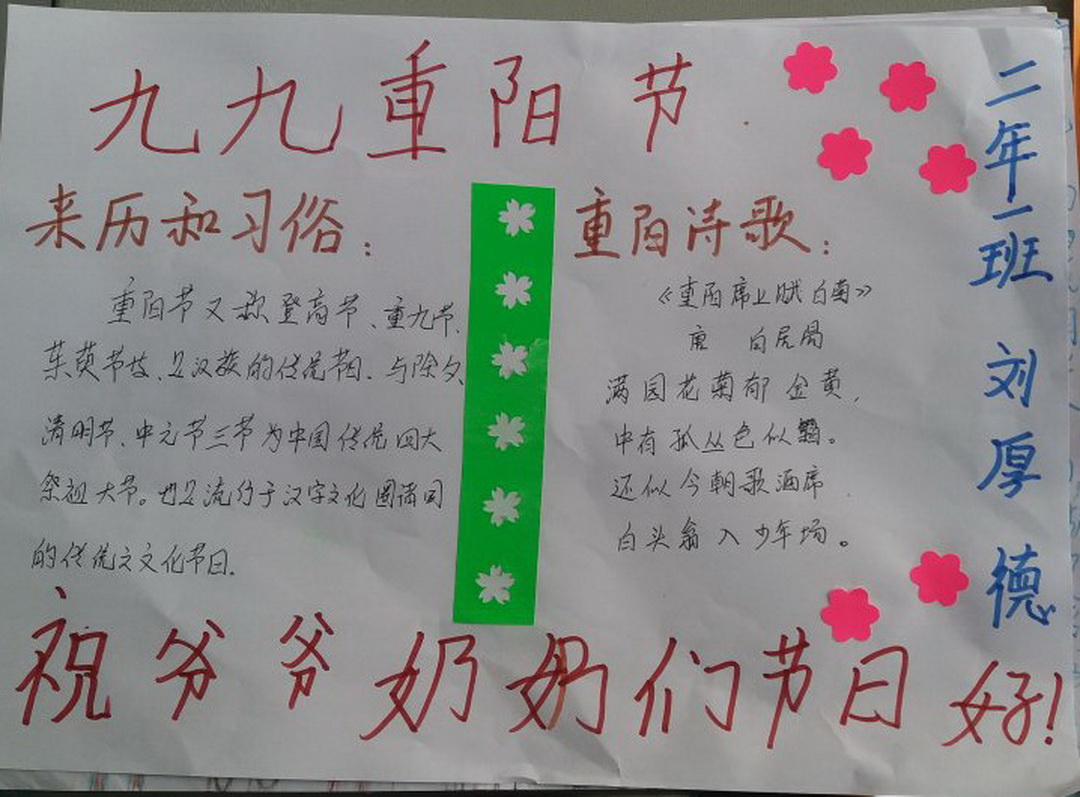 九九重阳节
来历和习俗：
重阳节又称登高节、重九节、
茱萸节等、是汉族的传统节日、与除夕、
清明节、中元节三节为中国传统四大
祭祖大节。也是流行于汉字文化圈诸国
的传统文文化节日.
重阳诗歌：
《重阳席上赋白菊》
唐 白居易
满园花菊郁金黄,
中有孤丛色似霜。
还似今朝歌酒席
白头翁入少年场。
祝爷爷奶奶们节日好!
二年一班 刘厚德